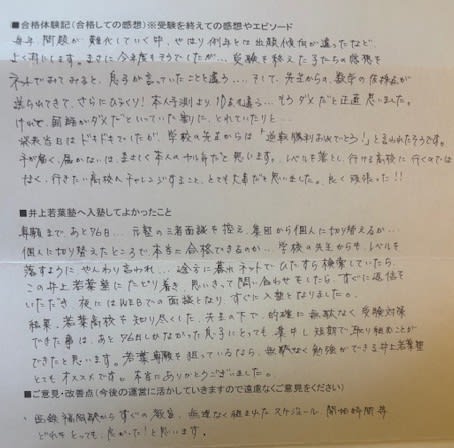 ■合格体験記（合格しての感想）※受験を終えての感想やエピソード
毎年、問題が難化していく中、やはり例年とは出題傾向が違ったなど、
よく耳にします。まさに今年度もそうでしたが…受験を終えた子たちの感想を
ネットでみてみると、息子が言っていたことと違う…。そして、先生からの、数学の
送られてきて、さらにびっくり！本人予測より、10点も違う…もうダメだと正直思いました。
けれど、前評がダメだといっていた割に、とれていたりと…
発表当日はドキドキでしたが、学校の先生からは「逆転勝利おめでとう！」と言われたそうです。
手が届く、届かないは、まさしく本人のやる気だと思います。レベルを落とし、行ける高校に行くのでは
なく、行きたい高校へチャレンジすること、とても大事だと思いました。良く頑張った!!
■井上若葉塾へ入塾してよかったこと
専願まで、あと76日…元塾の三者面談を控え、集団から個人に切り替えるか…
個人に切り替えたところで、本当に合格できるのか…学校の先生からも、レベルを
落すようにやんわり言われ…途方に暮れネットでひたすら検索していたら、
この井上若葉塾にたどり着き、思いきって問い合わせをしたら、すぐに返信を
いただき、夜にはWEBでの面談となり、すぐに入塾となりました。
結果、若葉高校を知り尽くした、先生の下で、的確に無駄なく受験対策
できた事は、あと76日しかなかった息子にとっても集中し短期で取り組むことが
できたと思います。若葉専願を狙っているなら、無駄なく勉強ができる井上若葉塾
とてもオススメです。本当にありがとうございました。
■ご意見・改善点（今後の運営に活かしていきますので遠慮なくご意見をください）
・西鉄福岡駅からすぐの教室、無理なく組まれたスケジュール、開始時間等
どれをとっても、良かった！と思います。